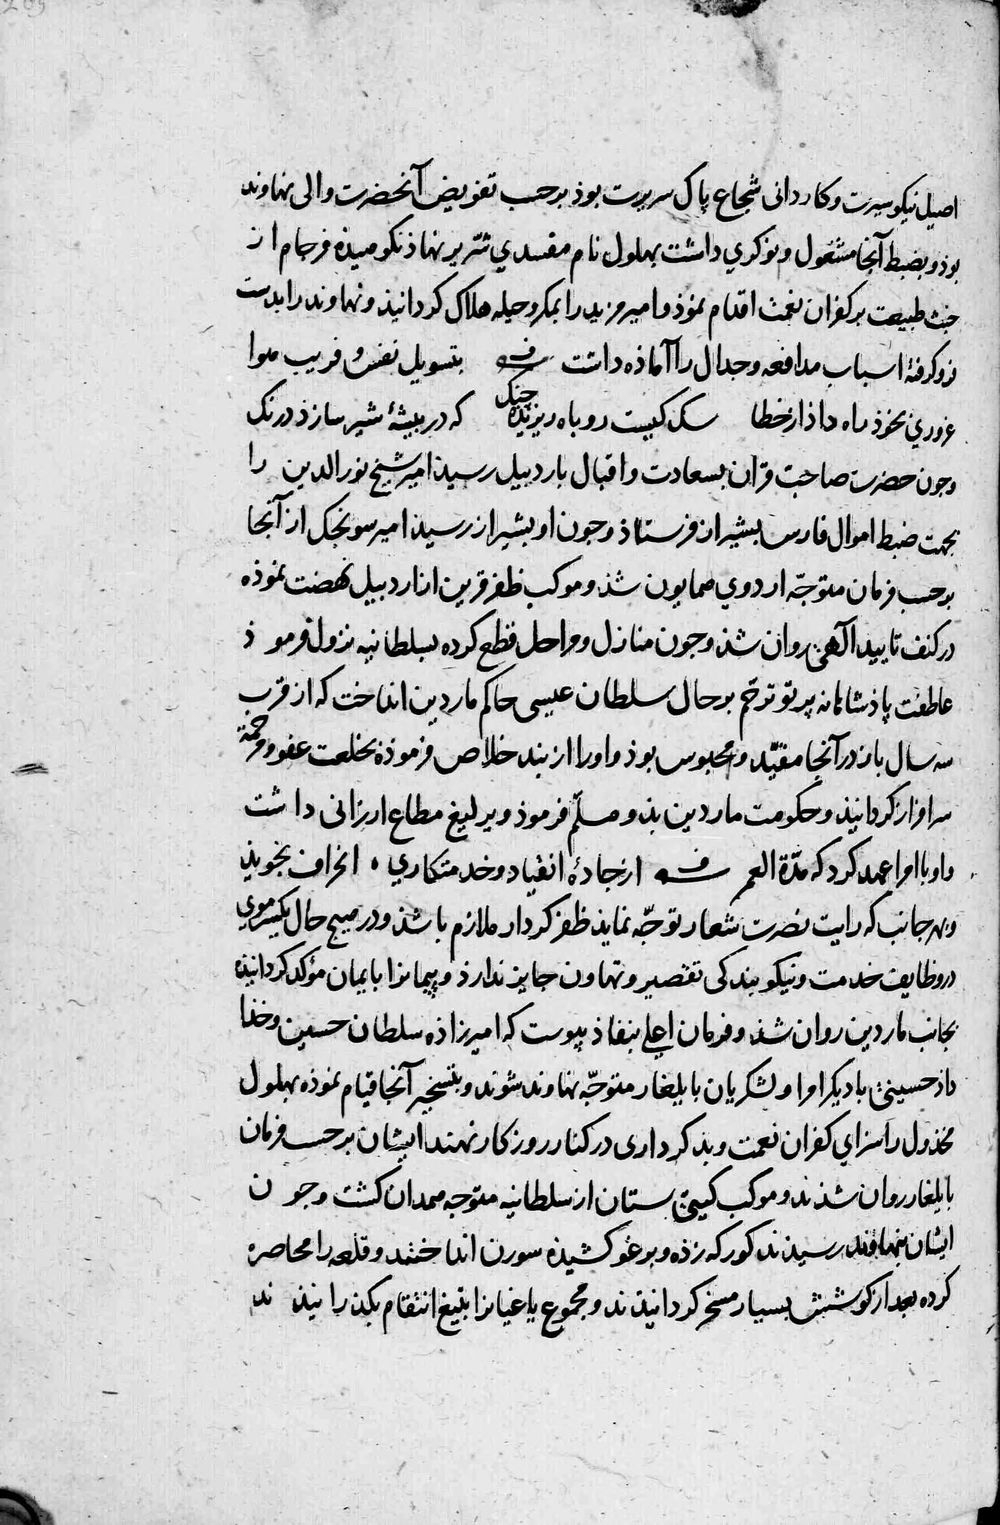 اصیل نیکو سیرت و کاردانی شجاع پاک سریرت بوذ بر حسب تفویض آنحضرت والی نهاوند
بوذ و بضبط آنجا مشغول و نوکری داشت بهلول نام مفسدی شریر نهاذ نکوهیذه فرجام از
خبث طبیعت بر کفران نعمت اقدام نموذ و امیر مزید را بمکر و حیله هلاک کردانیذ و نهاوند را بدست
فرو کرفته اسباب مدافعه و جدال را آماذه داشت بتسویل نفس و فریب هوا
غروری بخوذ راه داذ از خطا سک کیست روباه ریزیده جنک که در بیشهٔ شیر سازذ درنک
و جون حضرت صاحب قران بسعادت و اقبال باردبیل رسیذ امیر شیخ نورالدین را
بجهت ضبط اموال فارس بشیراز فرستاذ و جون او بشیراز رسیذ امیر سونجک از آنجا
بر حسب فرمان متوجّه اردوی همایون شذ و موکب ظفر قرین از اردبیل نهضت نموذه
در کنف تایید الٓهی روان شذ و جون منازل و مراحل قطع کرده بسلطانیه نزول فرموذ
عاطفت پاذشاهانه پرتو ترحّم بر حال سلطان عیسی حاکم ماردین انداخت که از قرب
سه سال باز در آنجا مقیّد و محبوس بوذ و او را از بند خلاص فرموذه بخلعت عفو و مرحمة
سرافراز کردانیذ و حکومت ماردین بذو مسلّم فرموذ و یرلیغ مطاع ارزانی داشت
و او با امرا عهد کرد که مدّة العمر از جادهٔ انقیاد و خدمتکاری انحراف نجویذ
و بهر جانب که رایت نصرت شعار توجّه نمایذ ظفر کردار ملازم باشذ و در هیج حال یکسر موی
در وظایف خدمت و نیکو بندکی تقصیر و تهاون جایز ندارذ و پیمانرا بایمان مؤکد کردانیذه
بجانب ماردین روان شذ و فرمان اعلی بنفاذ پیوست که امیرزاذه سلطان حسین و خذا
داذ حسینی با دیکر امرا و لشکریان بایلغار متوجّه نهاوند شوند و بتسخیر آنجا قیام نموذه بهلول
مخذول را سزای کفران نعمت و بذ کرداری در کنار روزکار نهند ایشان بر حسب فرمان
بایلغار روان شذند و موکب کیتی ستان از سلطانیه متوجه همدان کشت و جون
ایشان بنهاوند رسیذند کورکه زذه و برغو کشیذه سورن انداختند و قلعه را محاصره
کرده بعد از کوشش بسیار مسخر کردانیذند و مجموع یاغیانرا بتیغ انتقام بکذرانیذند